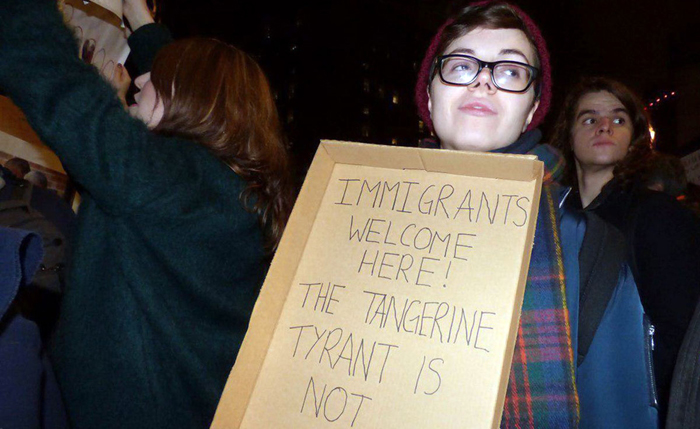 IMMIGRANTS
WELCOME
HERE!
THE TANGERINE
TYRANT IS
NOT